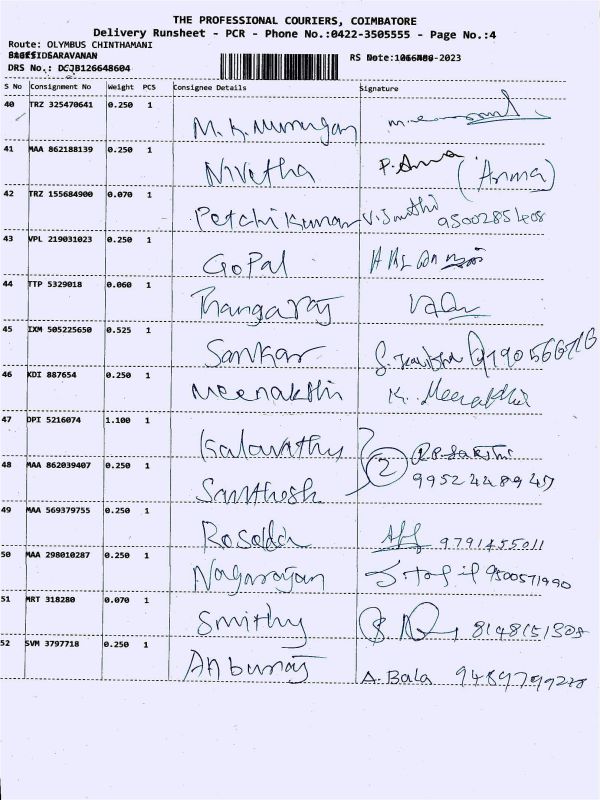 THE PROFESSIONAL COURIERS, COIMBATORE
Delivery Runsheet - PCR - Phone No.:0422-3505555 - Page No.:4
Route: OLYMBUS CHINTHAMANI
SARAVANAN RS Date: -2023
DRS No.: DCJB126648604
S No Consignment No Weight PCS Consignee Details Signature
40 TRZ 325470641 0.250 1
M.K.Murugan
41 MAA 862188139 0.250 1
Nivetha P. Anma (Anma)
42 TRZ 155684900 0.070 1
Petchikumar 9500285408
43 VPL 219031023 0.250 1
GoPal
44 TTP 5329018 0.060 1
Thangaraj
45 IXM 505225650 0.525 1
Sankar
46 KDI 887654 0.250 1
Meenakshi K. Meenakshi
47 DPI 5216074 1.100 1
Kalavathy
2
48 MAA 862039407 0.250 1
Santhosh 9952448947
49 MAA 569379755 0.250 1
9791455011
50 MAA 298010287 0.250 1
Nagarajan 9500571990
51 MRT 318280 0.070 1
Smithy 8148151308
52 SVM 3797718 0.250 1
Anburaj A. Bala